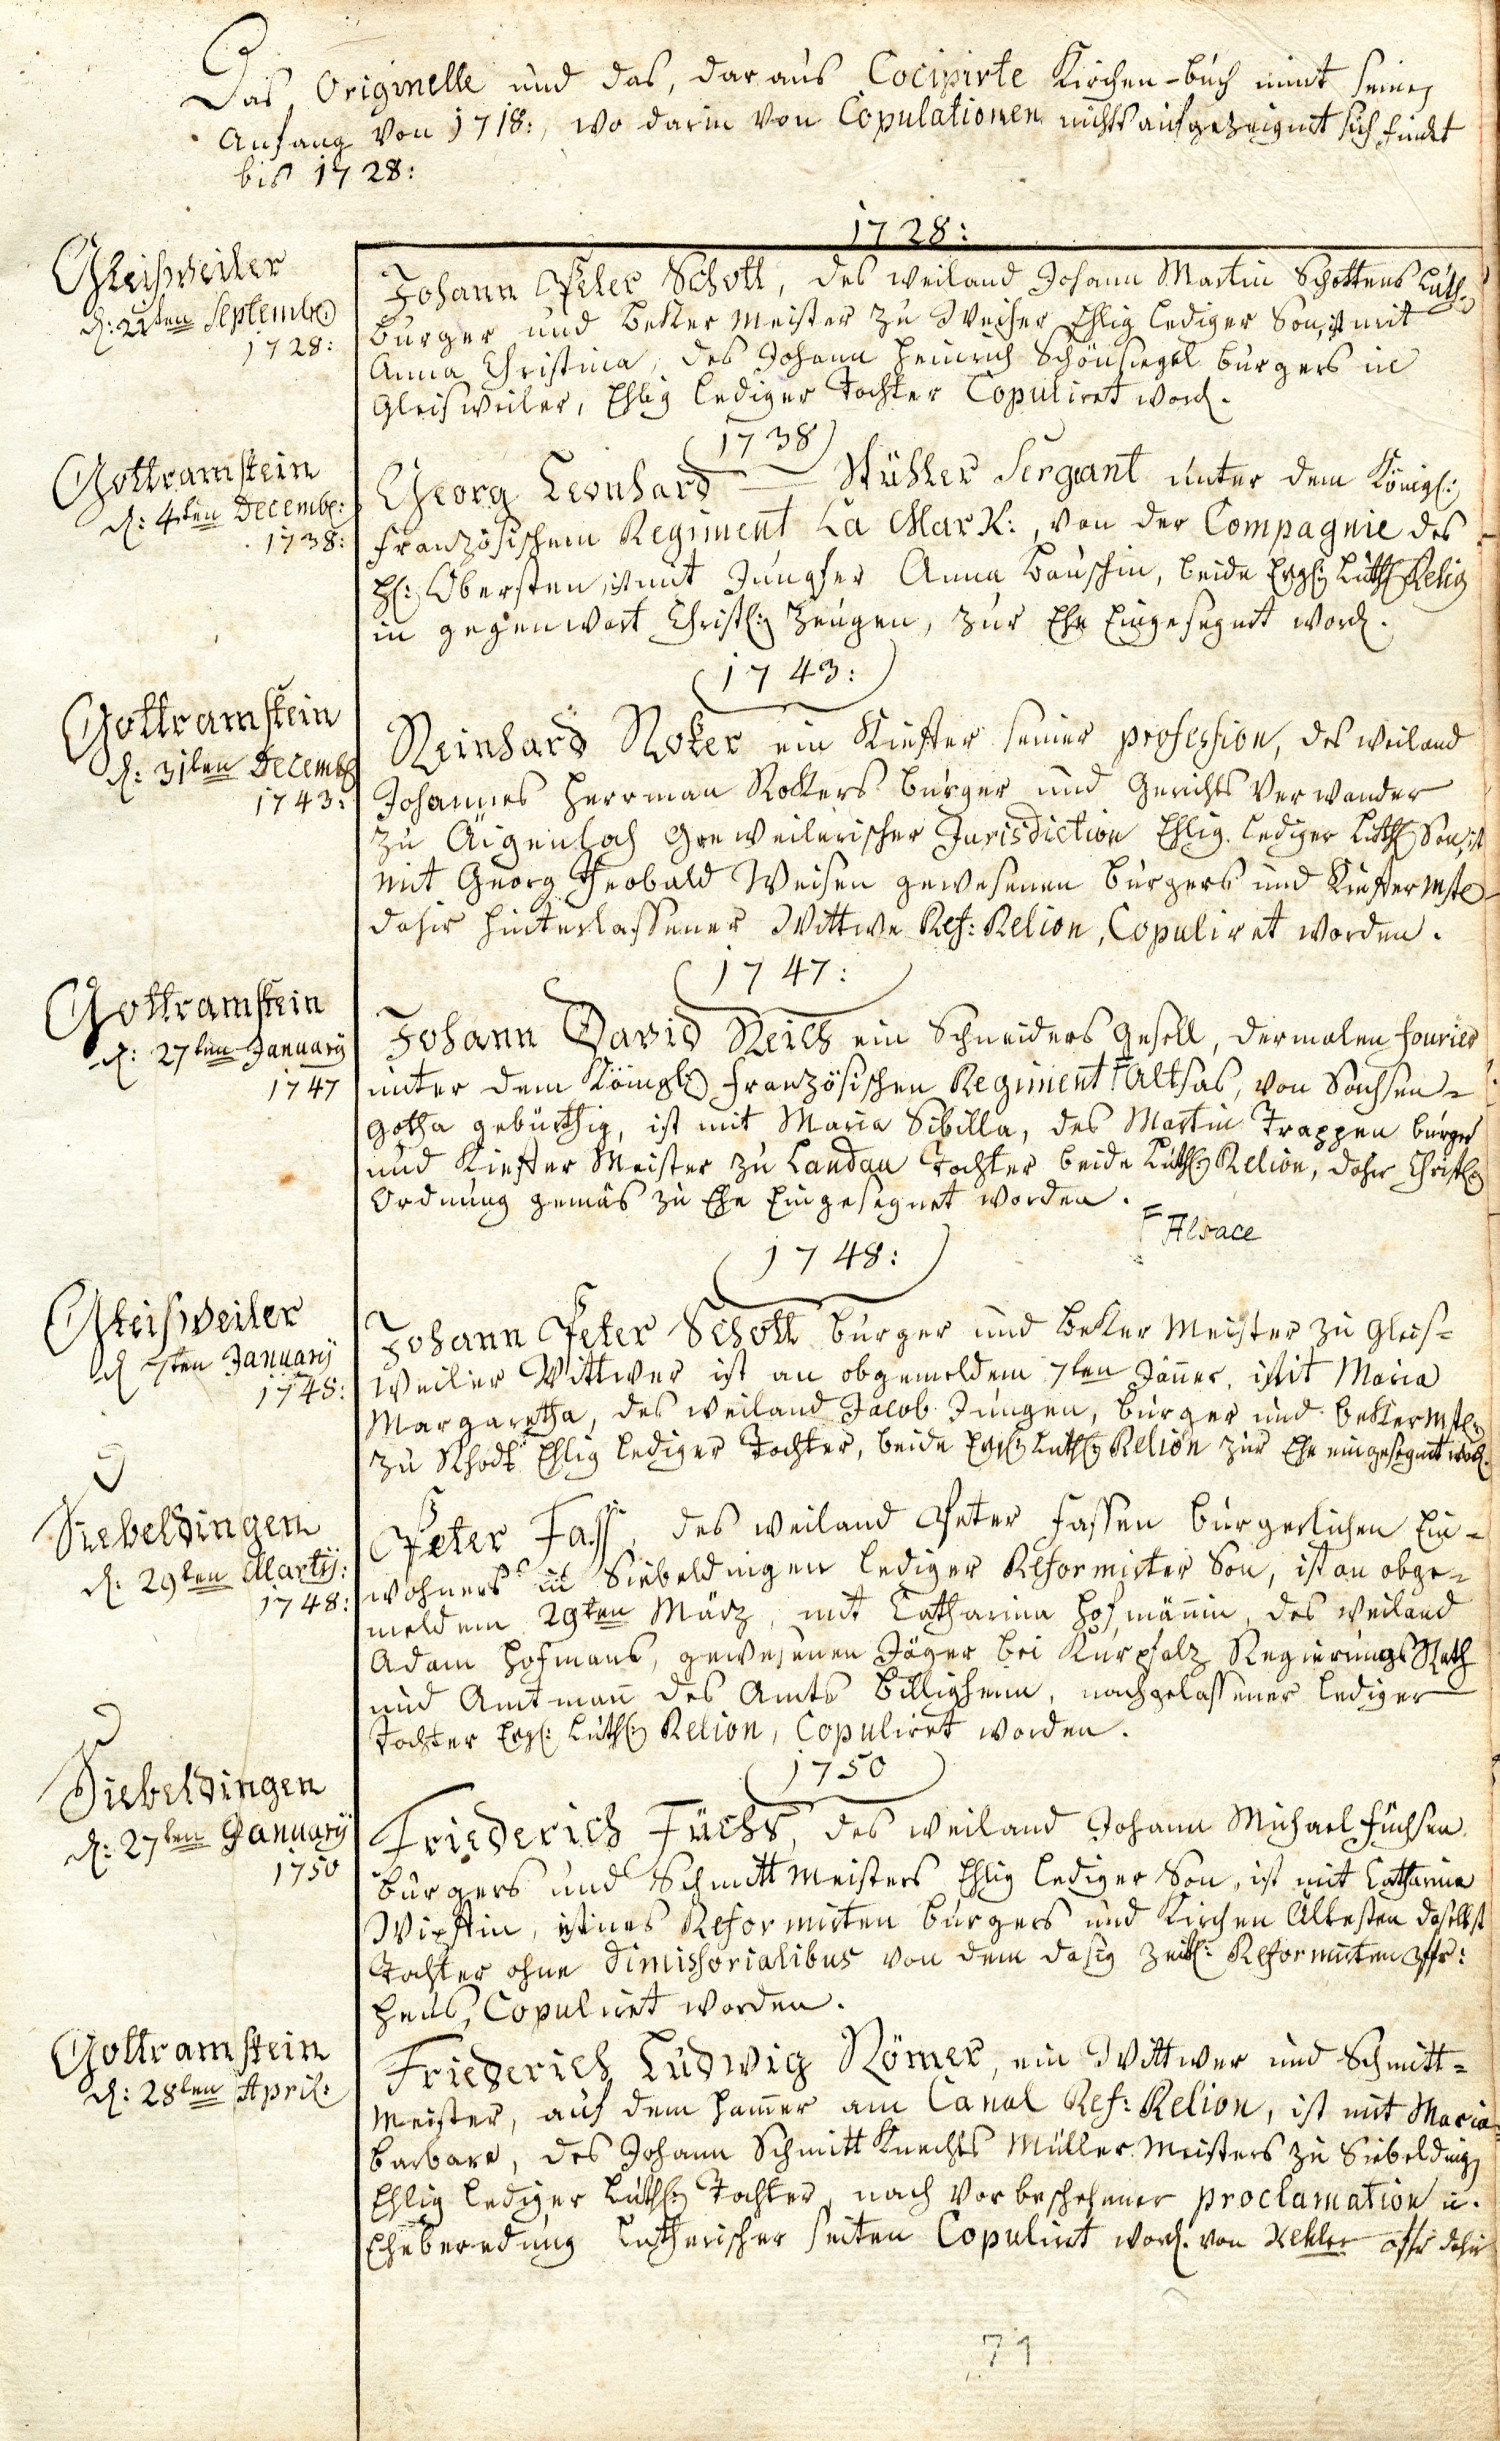 Das Originelle und das, daraus Cocipirte Kirchen-buch nimt seinen
Anfang von 1718:, wo darin von Copulationen nichts aufgezeignet sich findet
bis 1728:
1728:
Gleisweiler
d: 22ten Septembr:
1728:
Johann Peter Schott, des weiland Johann Martin Schottens Luth:
burger und Bekker Meister zu Weiher Ehlig lediger Son, ist mit
Anna Christina, des Johann Heinrich Schönsiegel burgers in
Gleisweiler, Ehlig lediger Tochter Copuliret word.
1738
Gottramstein
d: 4ten Decembr:
1738:
Georg Leonhard Stühler Sergeant unter dem Königl:
französischem Regiment La Mark:, von der Compagnie des
H: Obersten, ist mit Jungfer Anna Bauschin, beide Evgl: Luth: Relig
in gegenwart Christl: Zeugen, zur Ehe Eingesegnet word.
1743:
Gottramstein
d: 31ten Decemb:
1743:
Reinhard Roker ein Kieffer seiner profession, des weiland
Johannes Herrman Rokkers burger und Gerichts Verwander
zu Äigenloch Greweilerischer Jurisdiction Ehlig lediger Luth: Son, ist
mit Georg Theobald Weisen gewesenen burgers und Kieffermstr
dahir hinterlassener Wittwe Ref: Relion, Copuliret worden.
1747:
Gottramstein
d: 27ten January
1747
Johann David Reich ein Schneiders gesell, dermalen fourier
unter dem Königl: französischen Regiment F Altsas, von Sachsen-
gotha gebürthig, ist mit Maria Sibilla, des Martin Trappen burger
und Kieffer Meister zu Landau Tochter beide Luth: Relion, dahir Christl:
Ordnung gemäs zu Ehe Eingesegnet worden.
F Alsace
1748:
Gleisweiler
d 7ten January
1748:
Johann Peter Schott burger und Bekker Meister zu Gleis-
weiler Wittwer ist an obgemeldem 7ten Jäner, mit Maria
Margaretha, des weiland Jacob Jungen, burger und bekkermstr:
zu Rhodt Ehlig lediger Tochter, beide Evgl: Luth: Relion zur Ehe eingesegnet word.
Siebeldingen
d: 29ten Martij:
1748:
Peter Fass, des weiland Peter Fassen burgerlichen Ein-
wohners in Siebeldingen lediger Reformirter Son, ist an obge-
meldem 29ten März, mit Catharina Hofmännin, des weiland
Adam Hofmans, gewesenen Jäger bei Kurpfalz Regierungs Rath
und Amtman des Amts Billigheim, nachgelassener lediger
Tochter Evgl: Luth: Relion, Copuliret worden.
1750
Siebeldingen
d: 27ten January
1750
Friederich Füchs, des weiland Johann Michael Füchsen
burgers und Schmitt Meisters Ehlig lediger Son, ist mit Catharina
eines Reformirten burgers und Kirchen Ältesten daselbst
Tochter ohne Dimissorialibus von dem dasig zeitl: Reformirten Pfr:
Copuliret worden.
Gottramstein
d: 28ten April:
Friederich Ludwig Römer, ein Wittwer und Schmitt-
Meister, auf dem Hamer am Canal Ref: Relion, ist mit Maria
Barbara, des Johann Schmitt Knechts Müller Meisters zu Siebelding
Ehlig lediger Luth: Tochter, nach vorbeschehener proclamation u.
Eheberedung Lutherischer seiten Copuliret word. von Kekler dahir
71